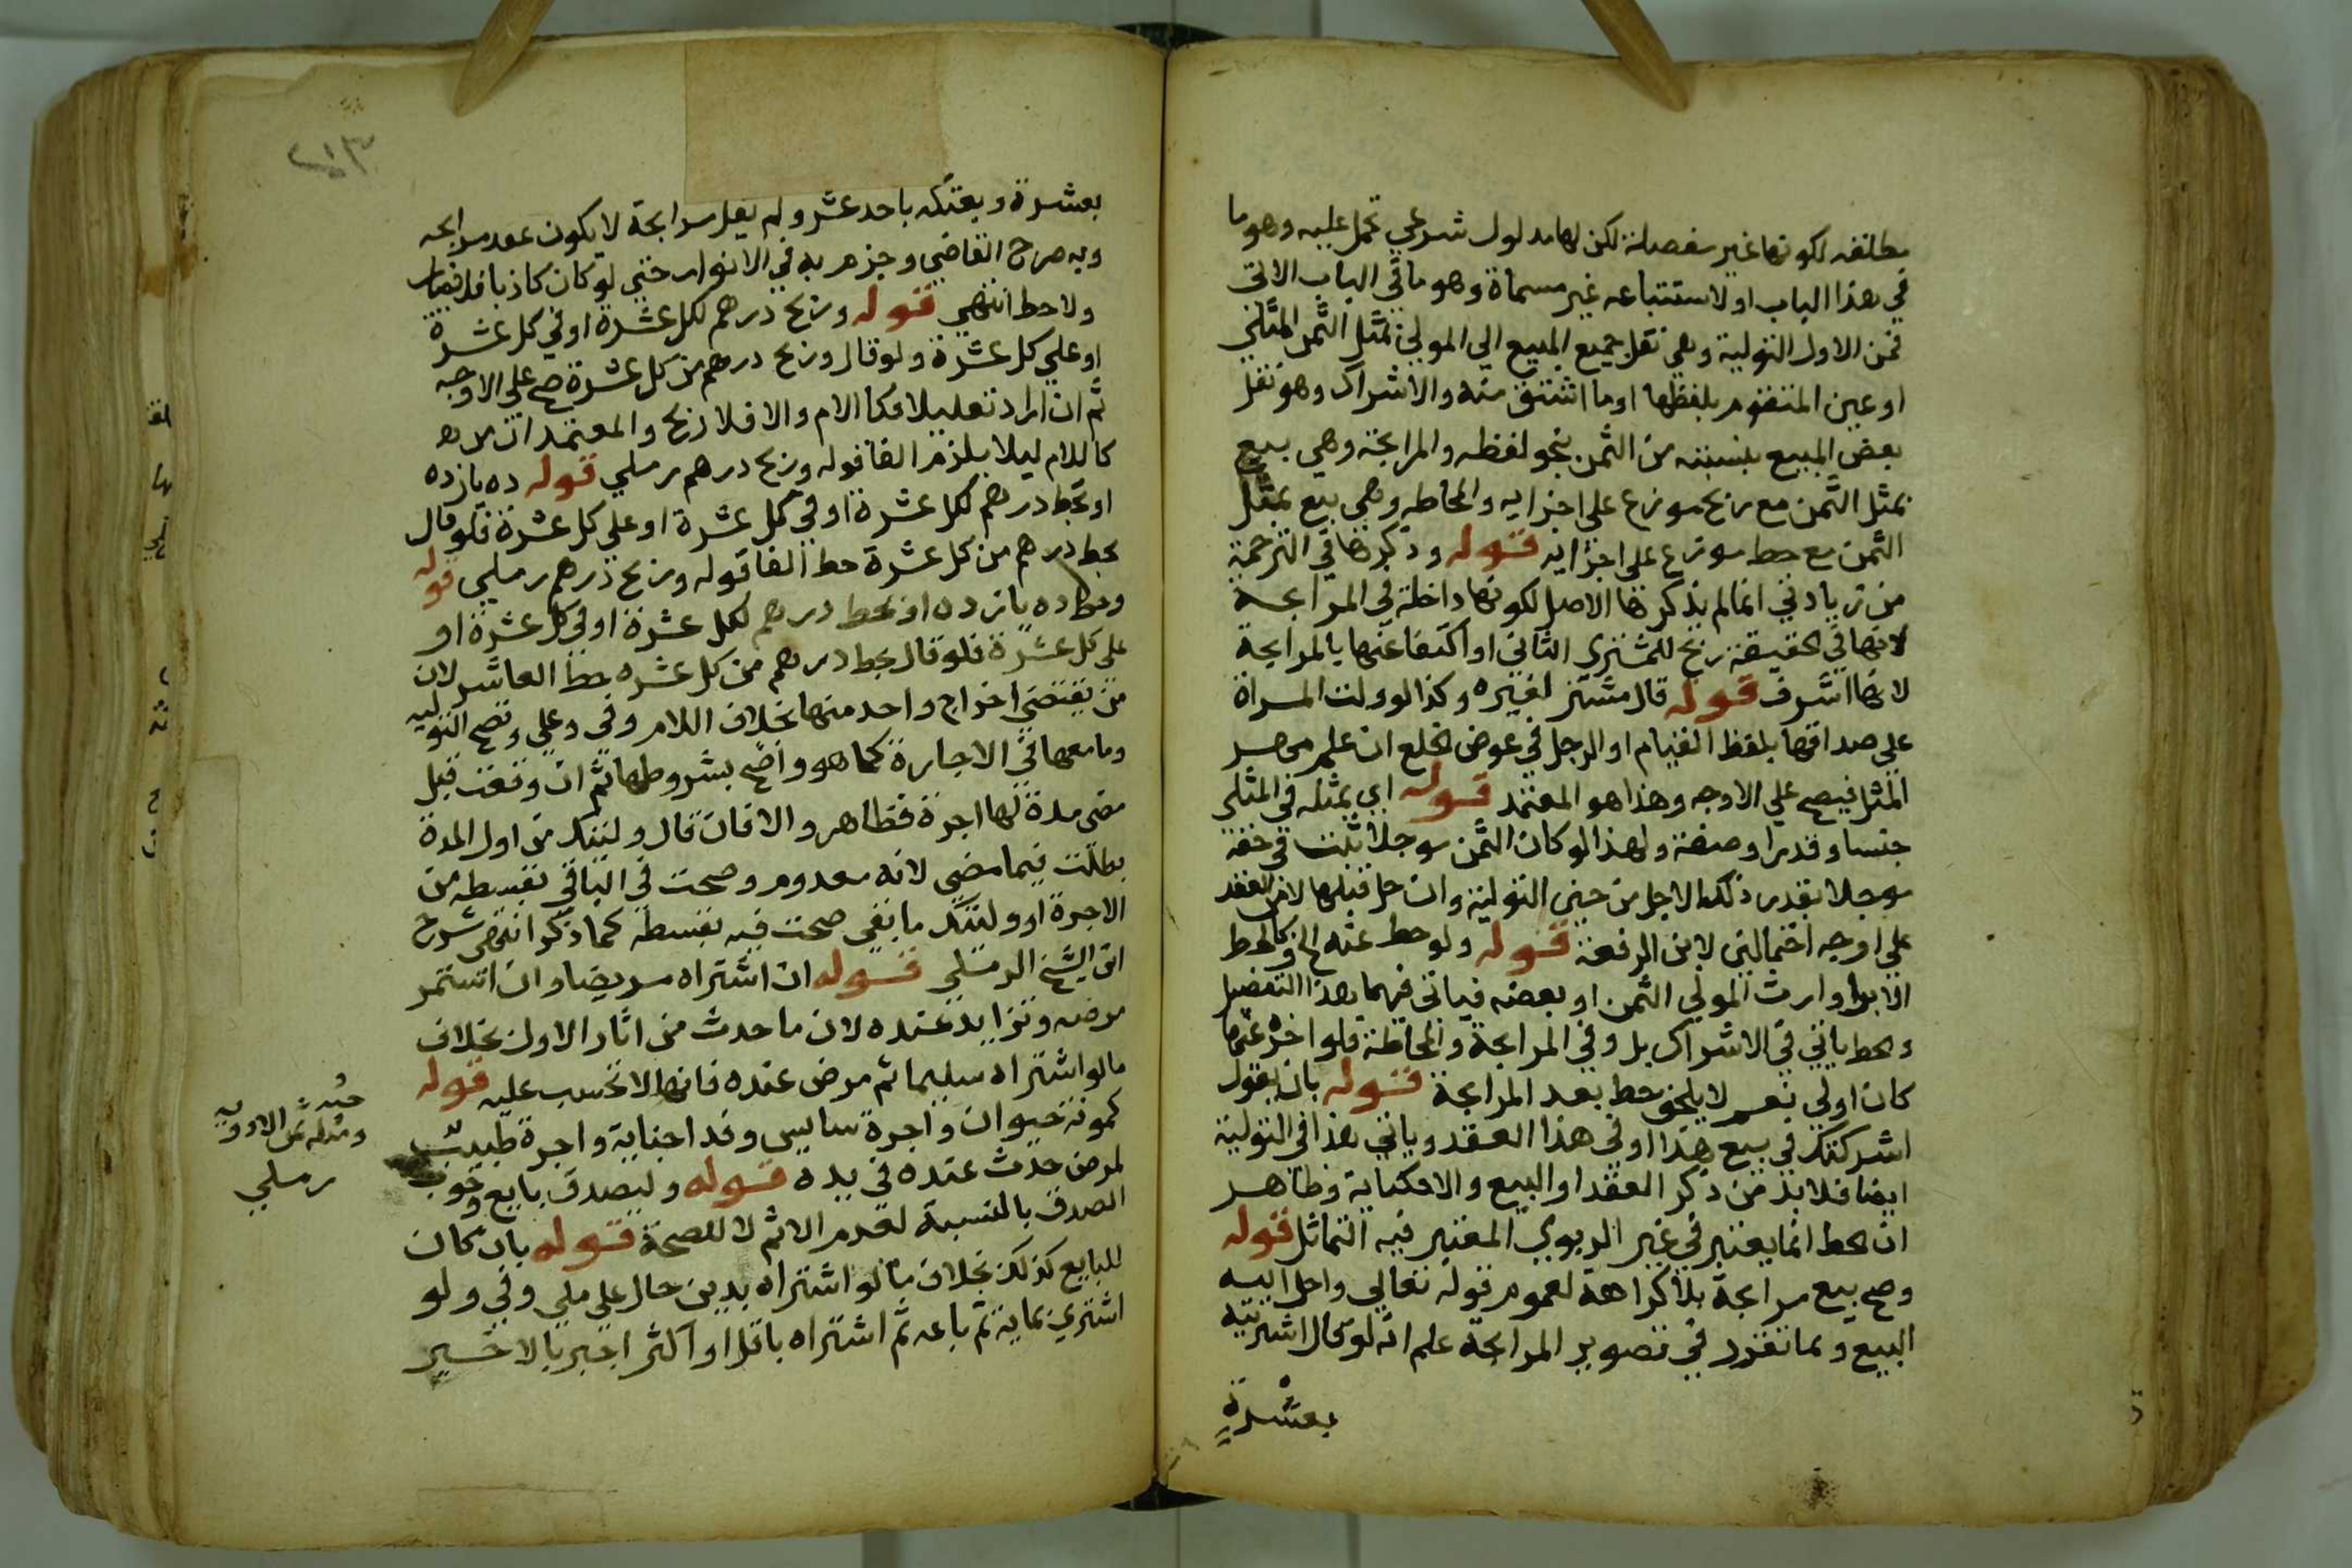 مطلقه لكونها غير مفصلة لكن لها مدلول شرعي تحمل عليه وهو ما
في هذا الباب او لاستتباعه غير مسماة وهو ما في الباب الاتي
فمن الاول التولية وهي نقل جميع المبيع الي المولي بمثل الثمن المثلي
او عين المتقوم بلفظها او ما اشتق منه والاشراك وهو نقل
بعض المبيع بنسبته من الثمن بنحو لفظه والمرابحة وهي بيع
بمثل الثمن مع ربح موزع علي اجزايه والمحاطه وهي بيع بمثل
الثمن مع حط موزع علي اجزايه قوله وذكرها في الترجمة
من زيادتي انما لم يذكرها الاصل لكونها داخلة في المرابحة
لانها في الحقيقة ربح للمشتري الثاني او اكتفا عنها بالمرابحة
لانها اشرف قوله قال مشتر لغيره وكذا لو ولت المراة
علي صداقها بلفظ القيام او الرجل في عوض الخلع ان علم مهر
المثل فيصح علي الاوجه وهذا هو المعتمد قوله اي بمثله في المثلي
جنسا وقدرا وصفة ولهذا لو كان الثمن موجلا ثبت في حقه
موجلا بقدر ذلك الاجل من حين التولية وان حل قبلها لا من العقد
علي اوجه احتمالين لابن الرفعة قوله ولو حط عنه الخ وكالحط
الابرا وارث المولي الثمن او بعضه فياتي فيهما هذا التفصيل
والحط ياتي في الاشراك بل وفي المرابحة والمحاطة فلو اخره عنها
كان اولي نعم لا يلحق حط بعد المرابحة قوله بان يقول
اشركتك في بيع هذا او في هذا العقد وياتي هذا في التولية
ايضا فلا بد من ذكر العقد او البيع والا فكناية وظاهر
ان الحط انما يعتبر في غير الربوي المعتبر فيه التماثل قوله
وصح بيع مرابحة بلا كراهة لعموم قوله تعالي واحل الله
البيع وبما تقرر في تصوير المرابحة علم انه لو قال اشتريته
بعشرة
٢١٣
بعشرة وبعتكه باحد عشر ولم يقل مرابحة لا يكون عقد مرابحه
وبه صرح القاضي وجزم به في الانوار حتي لو كان كاذبا فلا خيار
ولا حط انتهي قوله وربح درهم لكل عشرة او في كل عشرة
او علي كل عشرة ولو قال وربح درهم من كل عشرة صح علي الاوجه
ثم ان اراد تعليلا فكاللام والا فلا ربح والمعتمد انه
كاللام ليلا يلزم الغا قوله وربح درهم رملي قوله ده يازده
او بحط درهم لكل عشرة او في كل عشرة او علي كل عشرة فلو قال
بحط درهم من كل عشرة حط الغا قوله وربح درهم رملي قوله
وحط ده يازده او بحط درهم لكل عشرة او في كل عشرة او
علي كل عشرة فلو قال بحط درهم من كل عشره حط العاشر لان
من يقتضي اخراج واحد منها بخلاف اللام وفي وعلي وتصح التوليه
وما معها في الاجارة كما هو واضح بشروطها ثم ان وقعت قبل
مضي مدة لها اجرة فظاهر والا فان قال وليتك من اول المدة
بطلت فيما مضي لانه معدوم وصحت في الباقي بقسطه من
الاجرة او وليتك ما بقي صحت فيه بقسطه كما ذكر انتهي شرح
ابن الشيخ الرملي قوله ان اشتراه مريضا وان استمر
مرضه وتزايد عنده لان ما حدث من اثار الاول بخلاف
ما لو اشتراه سليما ثم مرض عنده فانها لا تحسب عليه قوله
كمونة حيوان واجرة سايس وفدا جناية واجرة طبيب
لمرض حدث عنده في يده قوله وليصدق بايع وجوب
الصدق بالنسبة لعدم الاثم لا للصحة قوله بان كان
للبايع كذلك بخلاف ما لو اشتراه بدين حال علي ملي وفي ولو
اشتري بماية ثم باعه ثم اشتراه باقل او اكثر اخبر بالاخير
ومثله ثمن الادوية
رملي